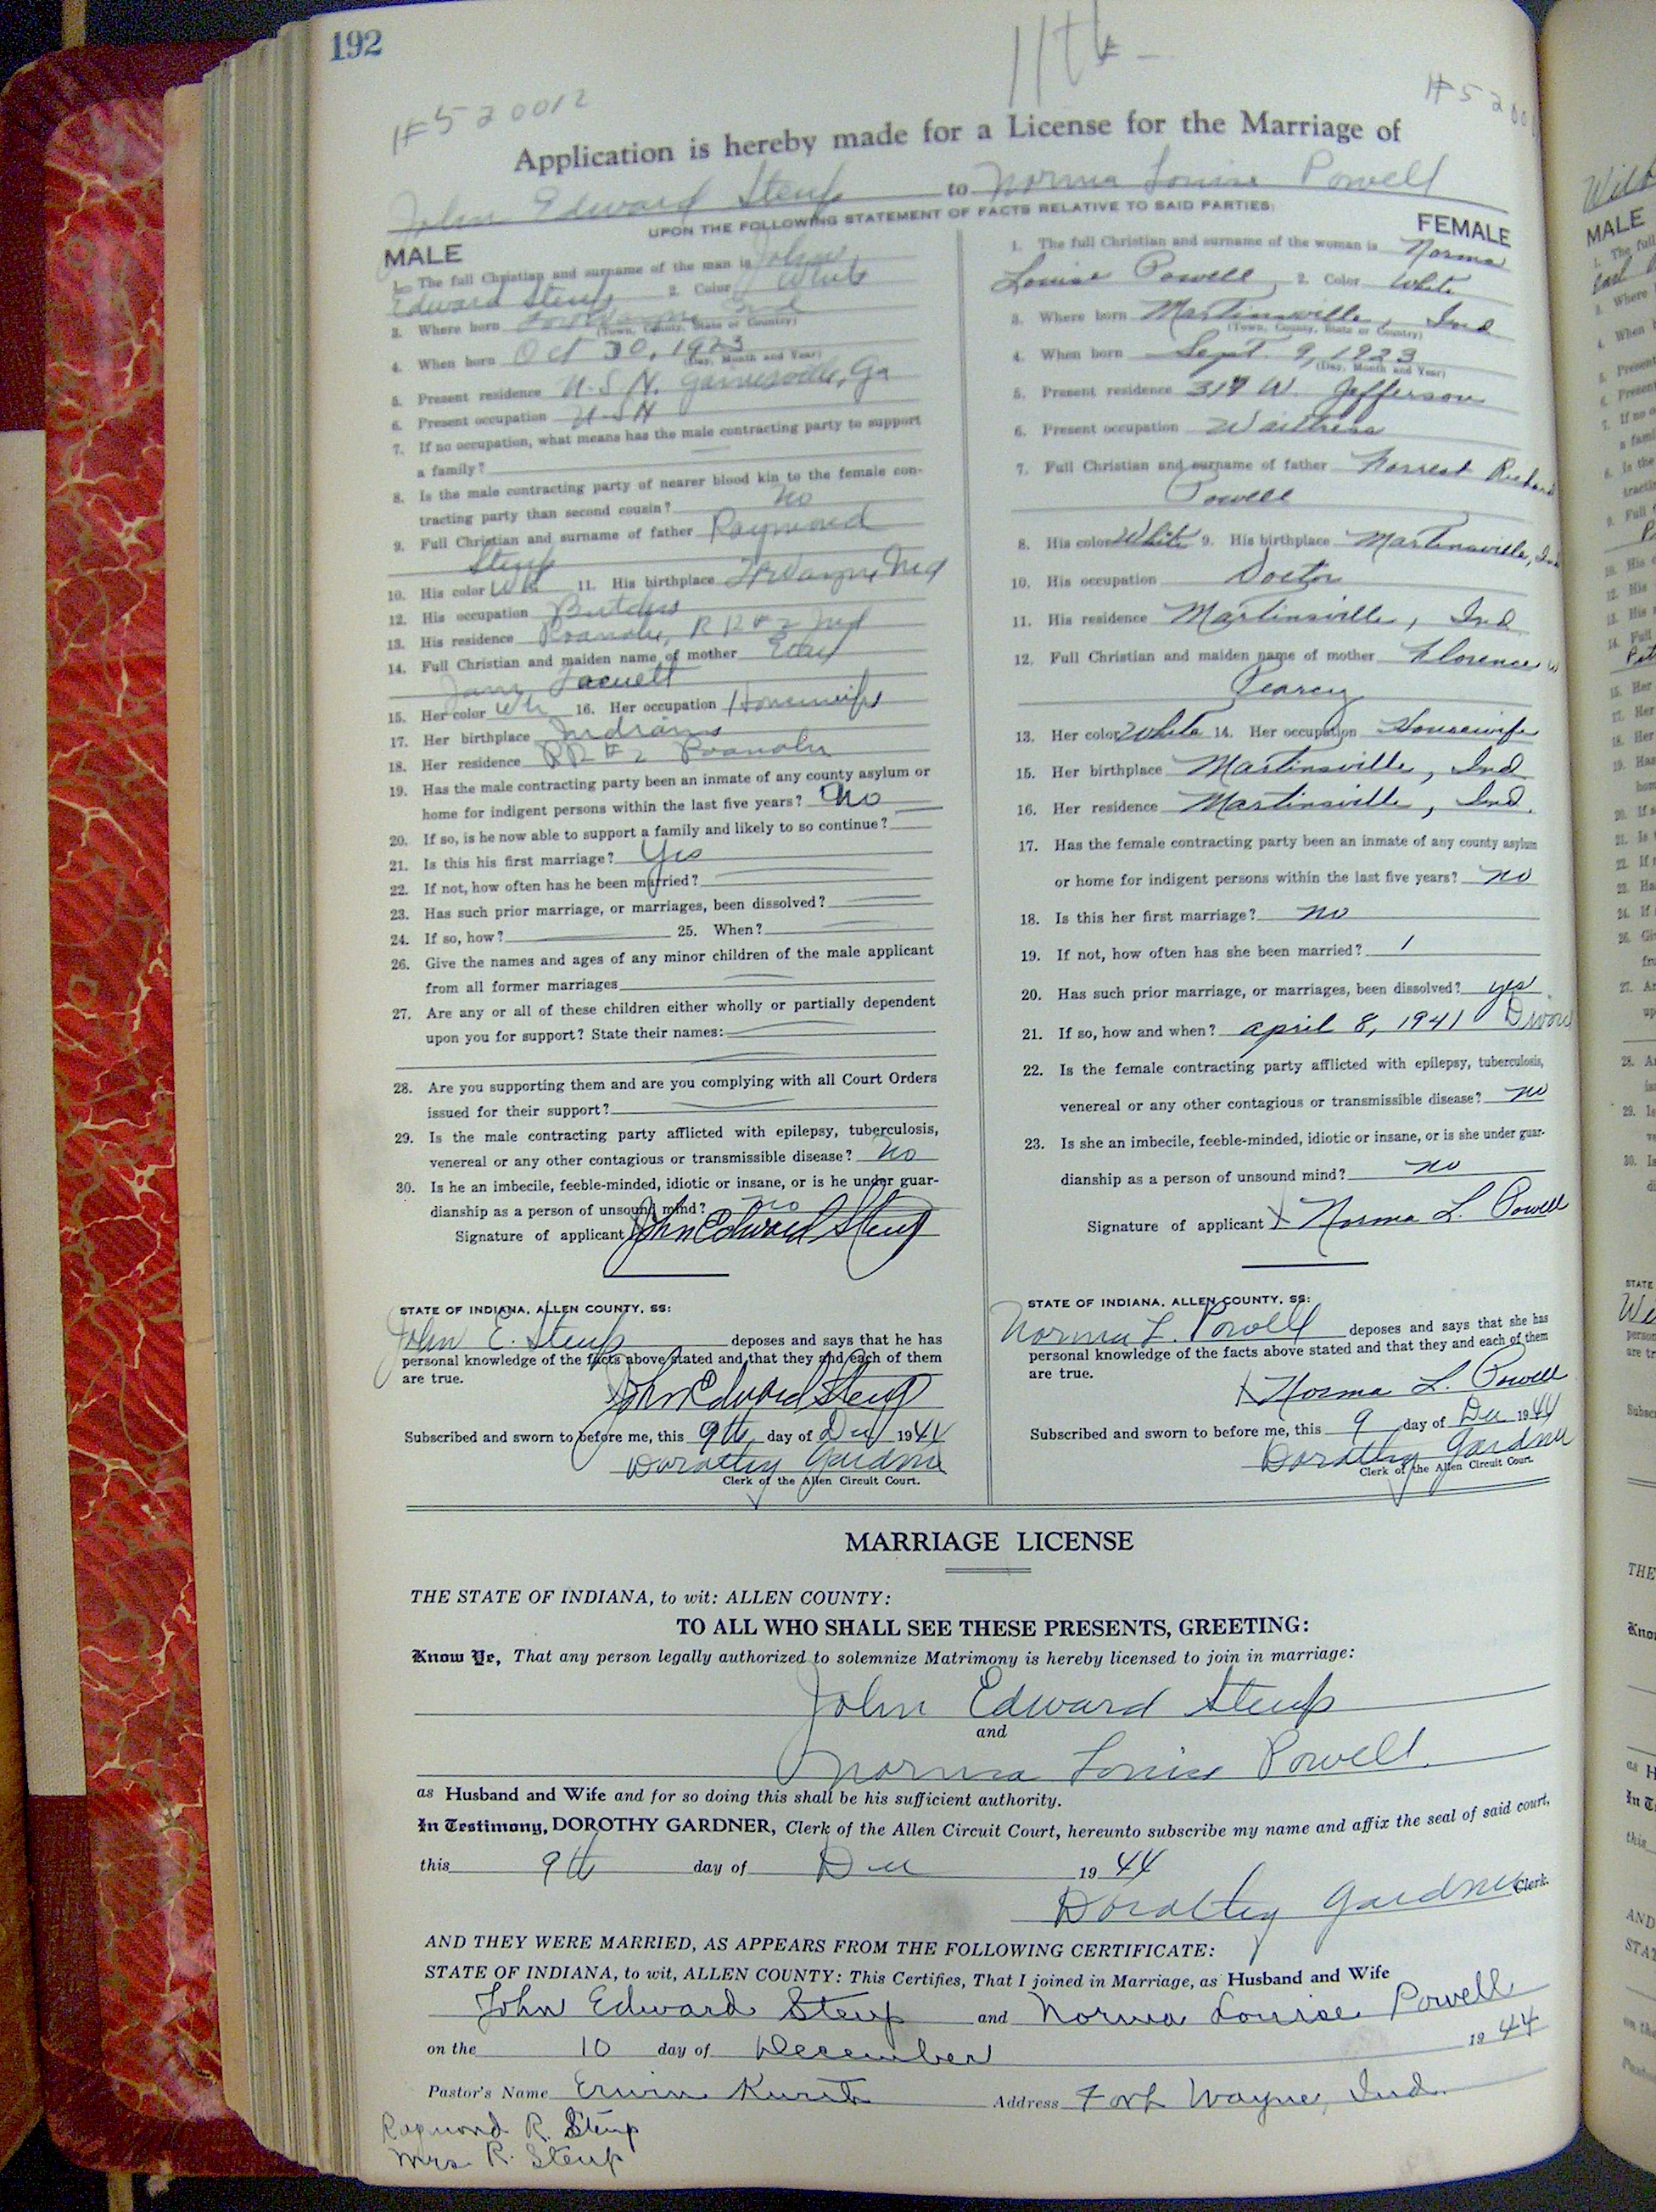 192
11th -
#520012
#5200
Application is hereby made for a License for the Marriage of
John Edward Steup to Norma Louise Powell
UPON THE FOLLOWING STATEMENT OF FACTS RELATIVE TO SAID PARTIES:
MALE
1. The full Christian and surname of the man is John
Edward Steup 2. Color White
3. Where born Fort Wayne Ind
(Town, County, State or Country)
4. When born Oct 30, 1923
(Day, Month and Year)
5. Present residence U.S.N. Gainesville, Ga
6. Present occupation U.S.N
7. If no occupation, what means has the male contracting party to support
a family?
8. Is the male contracting party of nearer blood kin to the female con-
tracting party than second cousin? No
9. Full Christian and surname of father Raymond
Steup
10. His color Wh 11. His birthplace Ft Wayne, Ind
12. His occupation Butcher
13. His residence Roanoke, RR #2 Ind
14. Full Christian and maiden name of mother
Jane
15. Her color Wh 16. Her occupation Housewife
17. Her birthplace Indiana
18. Her residence RR #2 Roanoke
19. Has the male contracting party been an inmate of any county asylum or
home for indigent persons within the last five years? No
20. If so, is he now able to support a family and likely to so continue?
21. Is this his first marriage? Yes
22. If not, how often has he been married?
23. Has such prior marriage, or marriages, been dissolved?
24. If so, how? 25. When?
26. Give the names and ages of any minor children of the male applicant
from all former marriages
27. Are any or all of these children either wholly or partially dependent
upon you for support? State their names:
28. Are you supporting them and are you complying with all Court Orders
issued for their support?
29. Is the male contracting party afflicted with epilepsy, tuberculosis,
venereal or any other contagious or transmissible disease? No
30. Is he an imbecile, feeble-minded, idiotic or insane, or is he under guar-
dianship as a person of unsound mind? no
Signature of applicant John Edward Steup
STATE OF INDIANA, ALLEN COUNTY, SS:
John E. Steup deposes and says that he has
personal knowledge of the facts above stated and that they and each of them
are true.
John Edward Steup
Subscribed and sworn to before me, this 9th day of Dec 1944
Dorothy Gardner
Clerk of the Allen Circuit Court.
FEMALE
1. The full Christian and surname of the woman is Norma
Louise Powell, 2. Color White
3. Where born Martinsville, Ind
(Town, County, State or Country)
4. When born Sept. 9, 1923
(Day, Month and Year)
5. Present residence 317 W. Jefferson
6. Present occupation Waitress
7. Full Christian and surname of father Forrest Richard
Powell
8. His color White 9. His birthplace Martinsville, Ind
10. His occupation Doctor
11. His residence Martinsville, Ind
12. Full Christian and maiden name of mother Florence
Pearcy
13. Her color White 14. Her occupation Housewife
15. Her birthplace Martinsville, Ind
16. Her residence Martinsville, Ind.
17. Has the female contracting party been an inmate of any county asylum
or home for indigent persons within the last five years? no
18. Is this her first marriage? no
19. If not, how often has she been married? 1
20. Has such prior marriage, or marriages, been dissolved? yes
21. If so, how and when? April 8, 1941 Divorc
22. Is the female contracting party afflicted with epilepsy, tuberculosis,
venereal or any other contagious or transmissible disease? no
23. Is she an imbecile, feeble-minded, idiotic or insane, or is she under guar-
dianship as a person of unsound mind? no
Signature of applicant X Norma L. Powell
STATE OF INDIANA, ALLEN COUNTY, SS:
Norma L. Powell deposes and says that she has
personal knowledge of the facts above stated and that they and each of them
are true.
X Norma L. Powell
Subscribed and sworn to before me, this 9 day of Dec 1944
Dorothy Gardner
Clerk of the Allen Circuit Court.
MARRIAGE LICENSE
THE STATE OF INDIANA, to wit: ALLEN COUNTY:
TO ALL WHO SHALL SEE THESE PRESENTS, GREETING:
Know Ye, That any person legally authorized to solemnize Matrimony is hereby licensed to join in marriage:
John Edward Steup
and
Norma Louise Powell
as Husband and Wife and for so doing this shall be his sufficient authority.
In Testimony, DOROTHY GARDNER, Clerk of the Allen Circuit Court, hereunto subscribe my name and affix the seal of said court,
this 9th day of Dec 1944
Dorothy Gardner Clerk.
AND THEY WERE MARRIED, AS APPEARS FROM THE FOLLOWING CERTIFICATE:
STATE OF INDIANA, to wit, ALLEN COUNTY: This Certifies, That I joined in Marriage, as Husband and Wife
John Edward Steup and Norma Louise Powell
on the 10 day of December 1944
Pastor's Name Erwin Kurth Address Fort Wayne, Ind.
Raymond R. Steup
Mrs. R. Steup